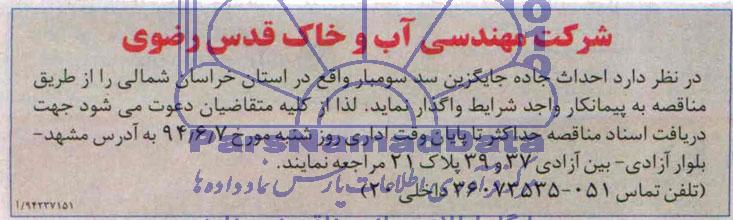 شرکت مهندسی آب و خاک قدس رضوی
در نظر دارد احداث جاده جایگزین سد سومبار واقع در استان خراسان شمالی را از طریق
مناقصه به پیمانکار واجد شرایط واگذار نماید. لذا از کلیه متقاضیان دعوت می شود جهت
دریافت اسناد مناقصه حداکثر تا پایان وقت اداری روز شنبه مورخ ۹۴/۶/۷ به آدرس مشهد-
بلوار آزادی- بین آزادی ۳۷ و ۳۹ پلاک ۲۱ مراجعه نمایند.
(تلفن تماس ۰۵۱-۳۶۰۷۳۵۳۵ داخلی ۲۰)
۱/۹۴۲۳۷۱۵۱
ParsNamadData
گردآوری اطلاعات پارس نماد داده ها